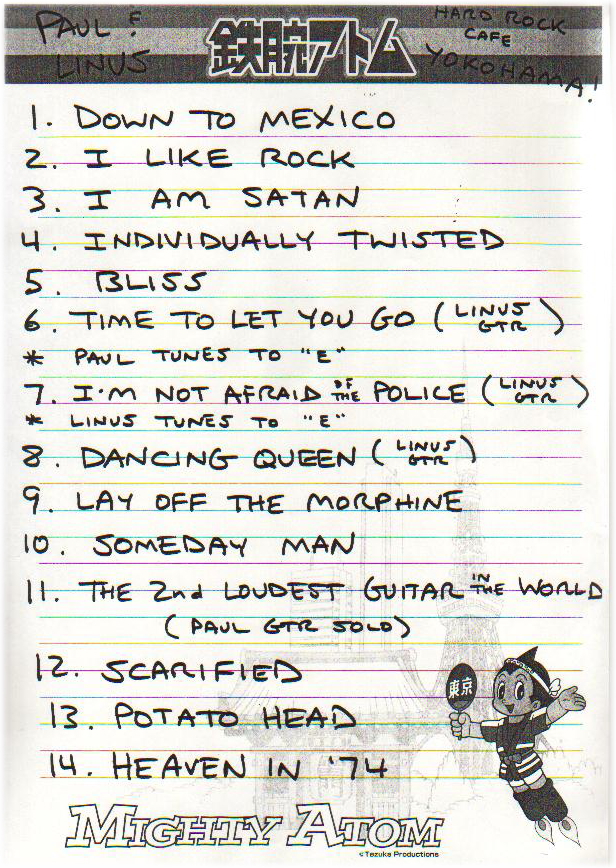 PAUL & LINUS
鉄腕アトム
HARD ROCK CAFE YOKOHAMA!
1. DOWN TO MEXICO
2. I LIKE ROCK
3. I AM SATAN
4. INDIVIDUALLY TWISTED
5. BLISS
6. TIME TO LET YOU GO (LINUS GTR)
* PAUL TUNES TO "E"
7. I'M NOT AFRAID OF THE POLICE (LINUS GTR)
* LINUS TUNES TO "E"
8. DANCING QUEEN (LINUS GTR)
9. LAY OFF THE MORPHINE
10. SOMEDAY MAN
11. THE 2nd LOUDEST GUITAR IN THE WORLD
(PAUL GTR SOLO)
12. SCARIFIED
13. POTATO HEAD
14. HEAVEN IN '74
東京
MIGHTY ATOM
©Tezuka Productions